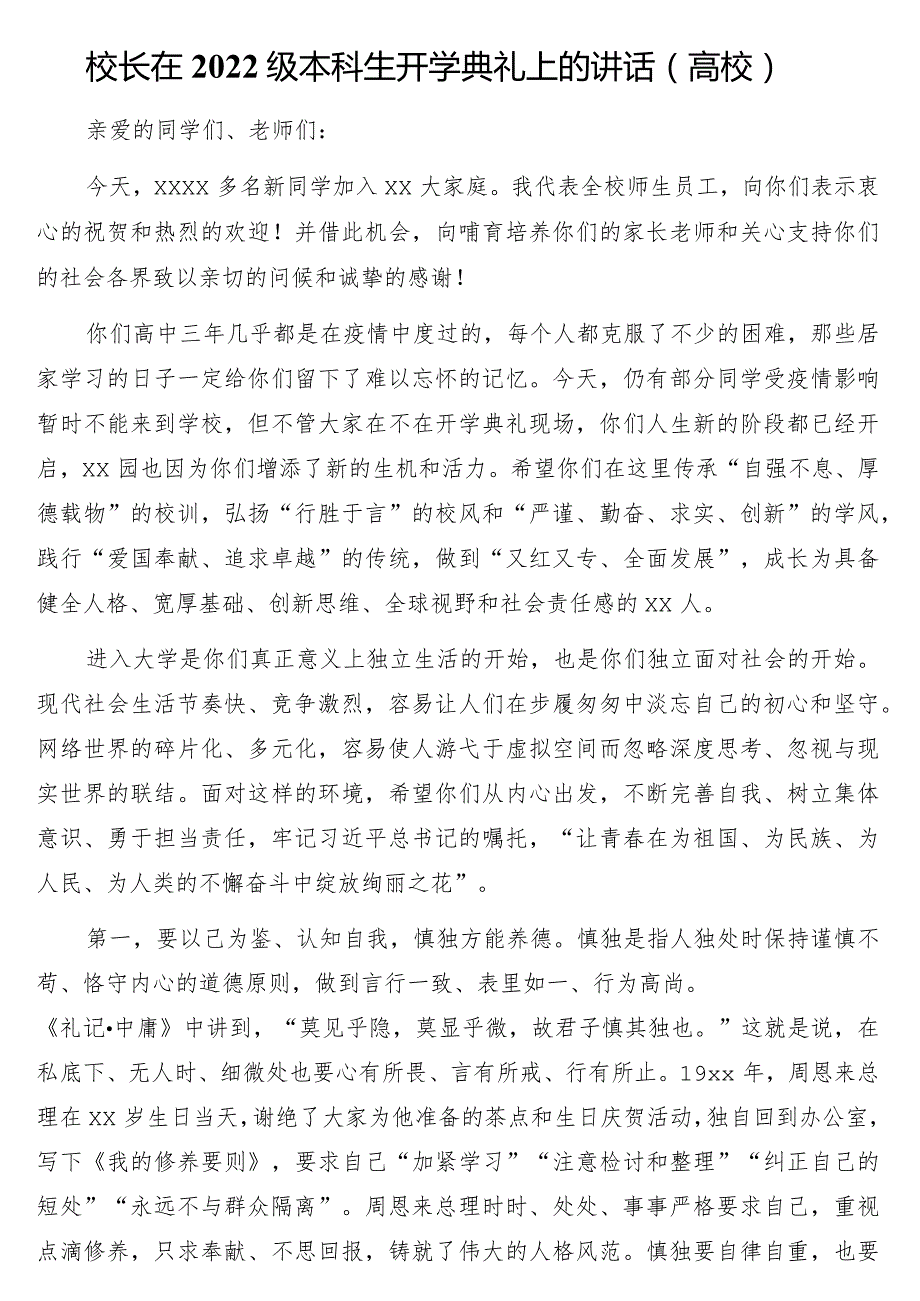 校长在 2022 级本科生开学典礼上的讲话（高校）
亲爱的同学们、老师们：
今天，XXXX 多名新同学加入 XX 大家庭。我代表全校师生员工，向你们表示衷
心的祝贺和热烈的欢迎！并借此机会，向哺育培养你们的家长老师和关心支持你们
的社会各界致以亲切的问候和诚挚的感谢！
你们高中三年几乎都是在疫情中度过的，每个人都克服了不少的困难，那些居
家学习的日子一定给你们留下了难以忘怀的记忆。今天，仍有部分同学受疫情影响
暂时不能来到学校，但不管大家在不在开学典礼现场，你们人生新的阶段都已经开
启，XX 园也因为你们增添了新的生机和活力。希望你们在这里传承“自强不息、厚
德载物”的校训，弘扬“行胜于言”的校风和“严谨、勤奋、求实、创新”的学风，
践行“爱国奉献、追求卓越”的传统，做到“又红又专、全面发展”，成长为具备
健全人格、宽厚基础、创新思维、全球视野和社会责任感的 XX 人。
进入大学是你们真正意义上独立生活的开始，也是你们独立面对社会的开始。
现代社会生活节奏快、竞争激烈，容易让人们在步履匆匆中淡忘自己的初心和坚守。
网络世界的碎片化、多元化，容易使人游弋于虚拟空间而忽略深度思考、忽视与现
实世界的联结。面对这样的环境，希望你们从内心出发，不断完善自我、树立集体
意识、勇于担当责任，牢记习近平总书记的嘱托，“让青春在为祖国、为民族、为
人民、为人类的不懈奋斗中绽放绚丽之花”。
第一，要以己为鉴、认知自我，慎独方能养德。慎独是指人独处时保持谨慎不
苟、恪守内心的道德原则，做到言行一致、表里如一、行为高尚。
《礼记•中庸》中讲到，“莫见乎隐，莫显乎微，故君子慎其独也。”这就是说，在
私底下、无人时、细微处也要心有所畏、言有所戒、行有所止。19xx 年，周恩来总
理在 XX 岁生日当天，谢绝了大家为他准备的茶点和生日庆贺活动，独自回到办公室，
写下《我的修养要则》，要求自己“加紧学习”“注意检讨和整理”“纠正自己的
短处”“永远不与群众隔离”。周恩来总理时时、处处、事事严格要求自己，重视
点滴修养，只求奉献、不思回报，铸就了伟大的人格风范。慎独要自律自重，也要